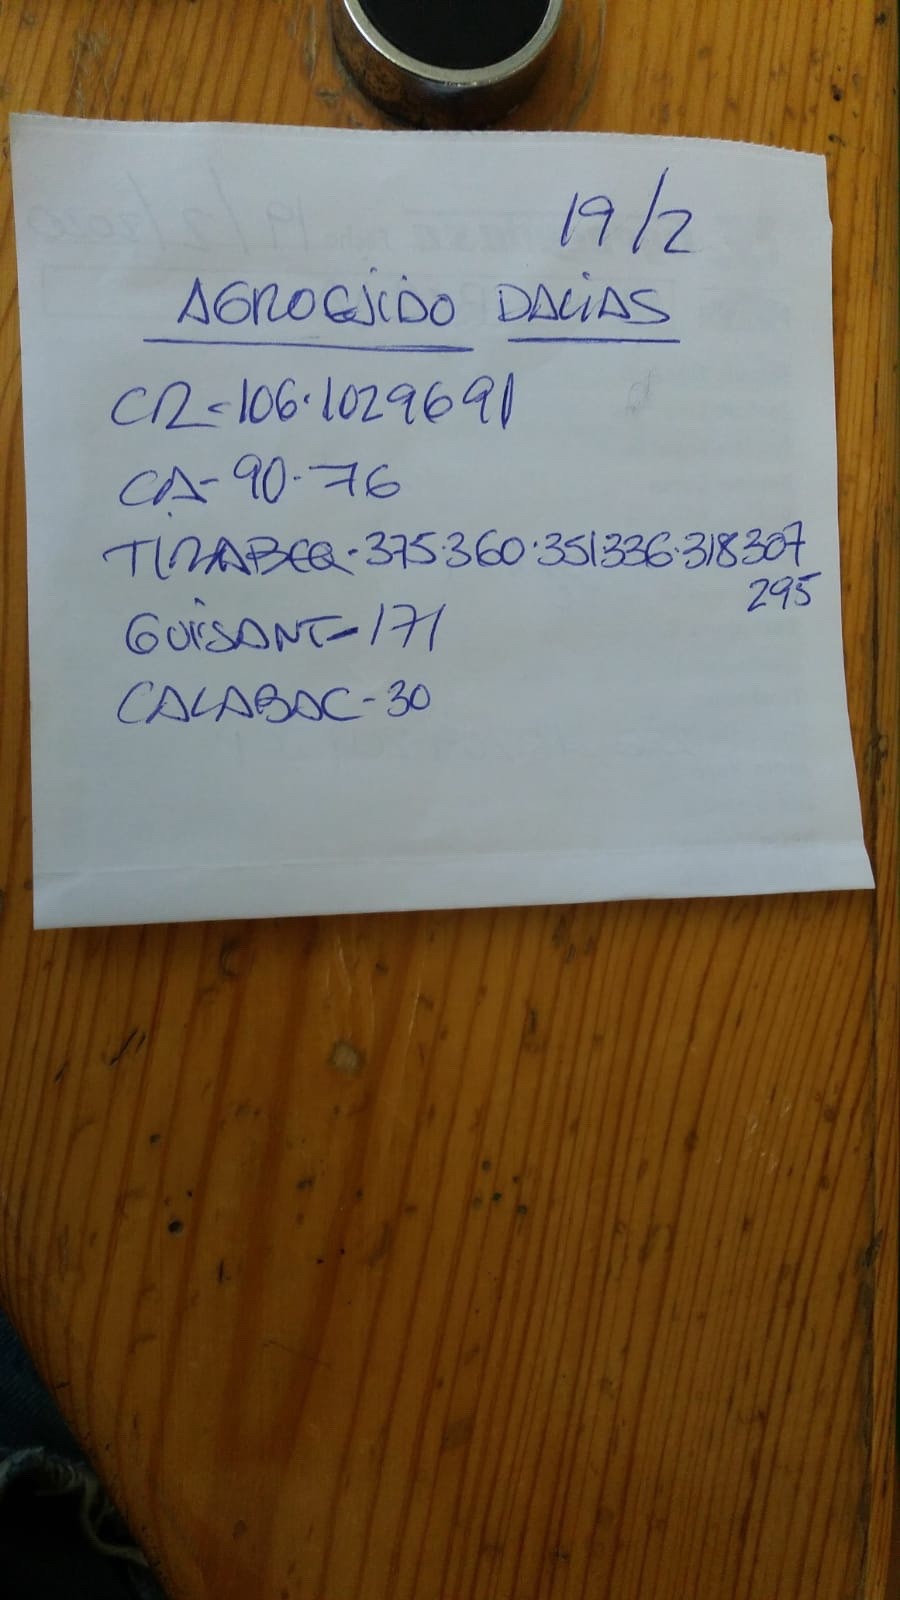 19/2
AGROEJIDO DALIAS
CR-106.102 96 91
CA-90.76
TIRABEQ-375.360.351 336.318 307
295
GUISANT-171
CALABAC-30